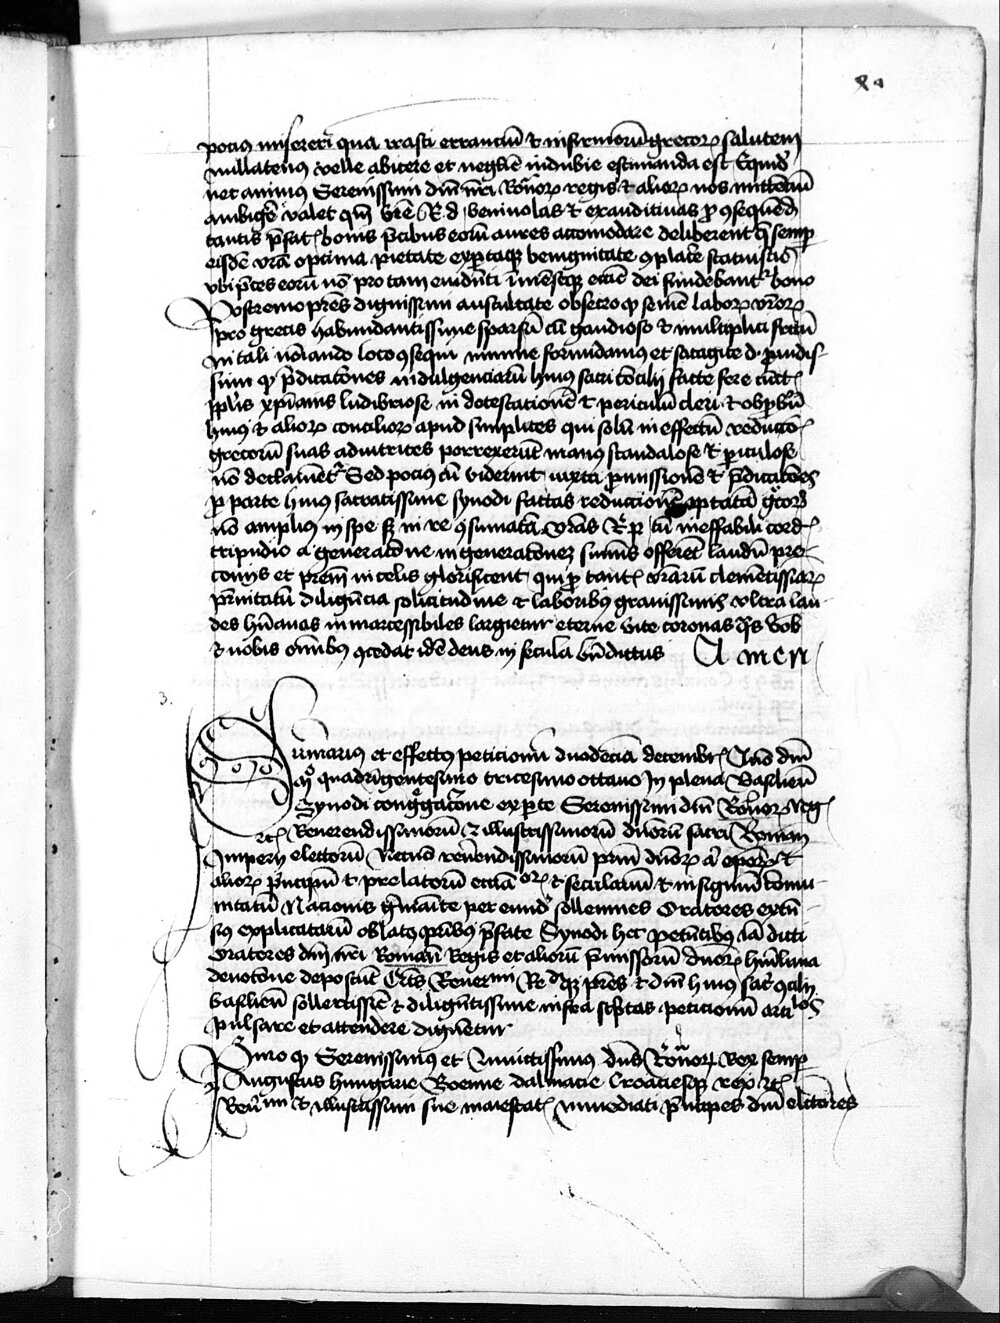 80
pocius misereri qua vasti erranciu et infirmoru grecor salutem
nullatenus velle abicere et negligere indubie estimanda est Equid
nec animus Serenissimi dni nri Romor regis et alior nos mittenciu
ambigere valet qin vre R. d. benivolas et exauditivas pro consequend
tantis prefat bonis precibus eoru aures accomodare deliberent q semp
eisde vra optima pietate expertaque benignitate complacere statuistis
ubi preces eoru non pro tam evidenti immensoque eccie dei fundebant bono
Postremo pres dignissimi auscultate obsecro quod semen labor vror
pro grecis habundantissime sparsu cu gaudioso et multiplici fructu
in tali noiando loco consequi minime formidamus et satagite d. providis
simi quod predicationes indulgenciaru huius sacri concilii facte fere cunct
populis xpianis ludibriose in detestacione et periculu cleri et obprobriu
huius et alior concilior apud simplices qui solu in effectu reductio
grecoru suas adiutrices porrexerut manus scandalose et periculose
no declament Sed pocius cu viderint iuxta promissione et predicationes
pro parte huius sacratissime synodi factas reductione optata grecor
no amplius in spe sed in re consumata vras R. p. cu ineffabili cord
tripudio a generatione in generationem summis offerent laudu pre
coniis et prem in celis glorificent qui pro tant vraru clementissiar
prnitatu diligencia solicitudine et laboribus gravissimis ultra lau
des humanas inmarcessibiles largietur eterne vite coronas quas vob
et nobis omnibus concedat ide deus in secula benedictus Amen
3.
Sumarius et effectus peticionu duodecia decembr Anno dni
Mo quadringentesimo tricesimo octavo In plena Basilien
Synodi congregatione ex parte Serenissimi dni Romor Reg
etc Reverendissimoru et illustrissimoru dnoru sacri Roman
Imperii electoru Necno reverendissimoru prim dnor archiepor et
alior principu et prelatoru eccia or et seculariu et insigniu comu
nitatu Nacionis germaice per eiusd sollennes Oratores extu
sius explicitatiu oblatis pribus prefate Synodi hec petentibus ia dicti
Oratores dni nri Roman Regis et alioru premissoru dnor humilima
devotione deposcut Ctis Reverimi Rede que pres et dni huius sacri concilii
basilien sollertissie et diligentissime infra scriptas peticionu articulos
pulsare et attendere dignetur
Primo quod Serenissimus et Invictissimus dns Romor rex semp
Augustus hungarie Boemie dalmacie Croacieque rex etc
Reverimi et illustrissimi sue maiestat inmediati principes dni electores